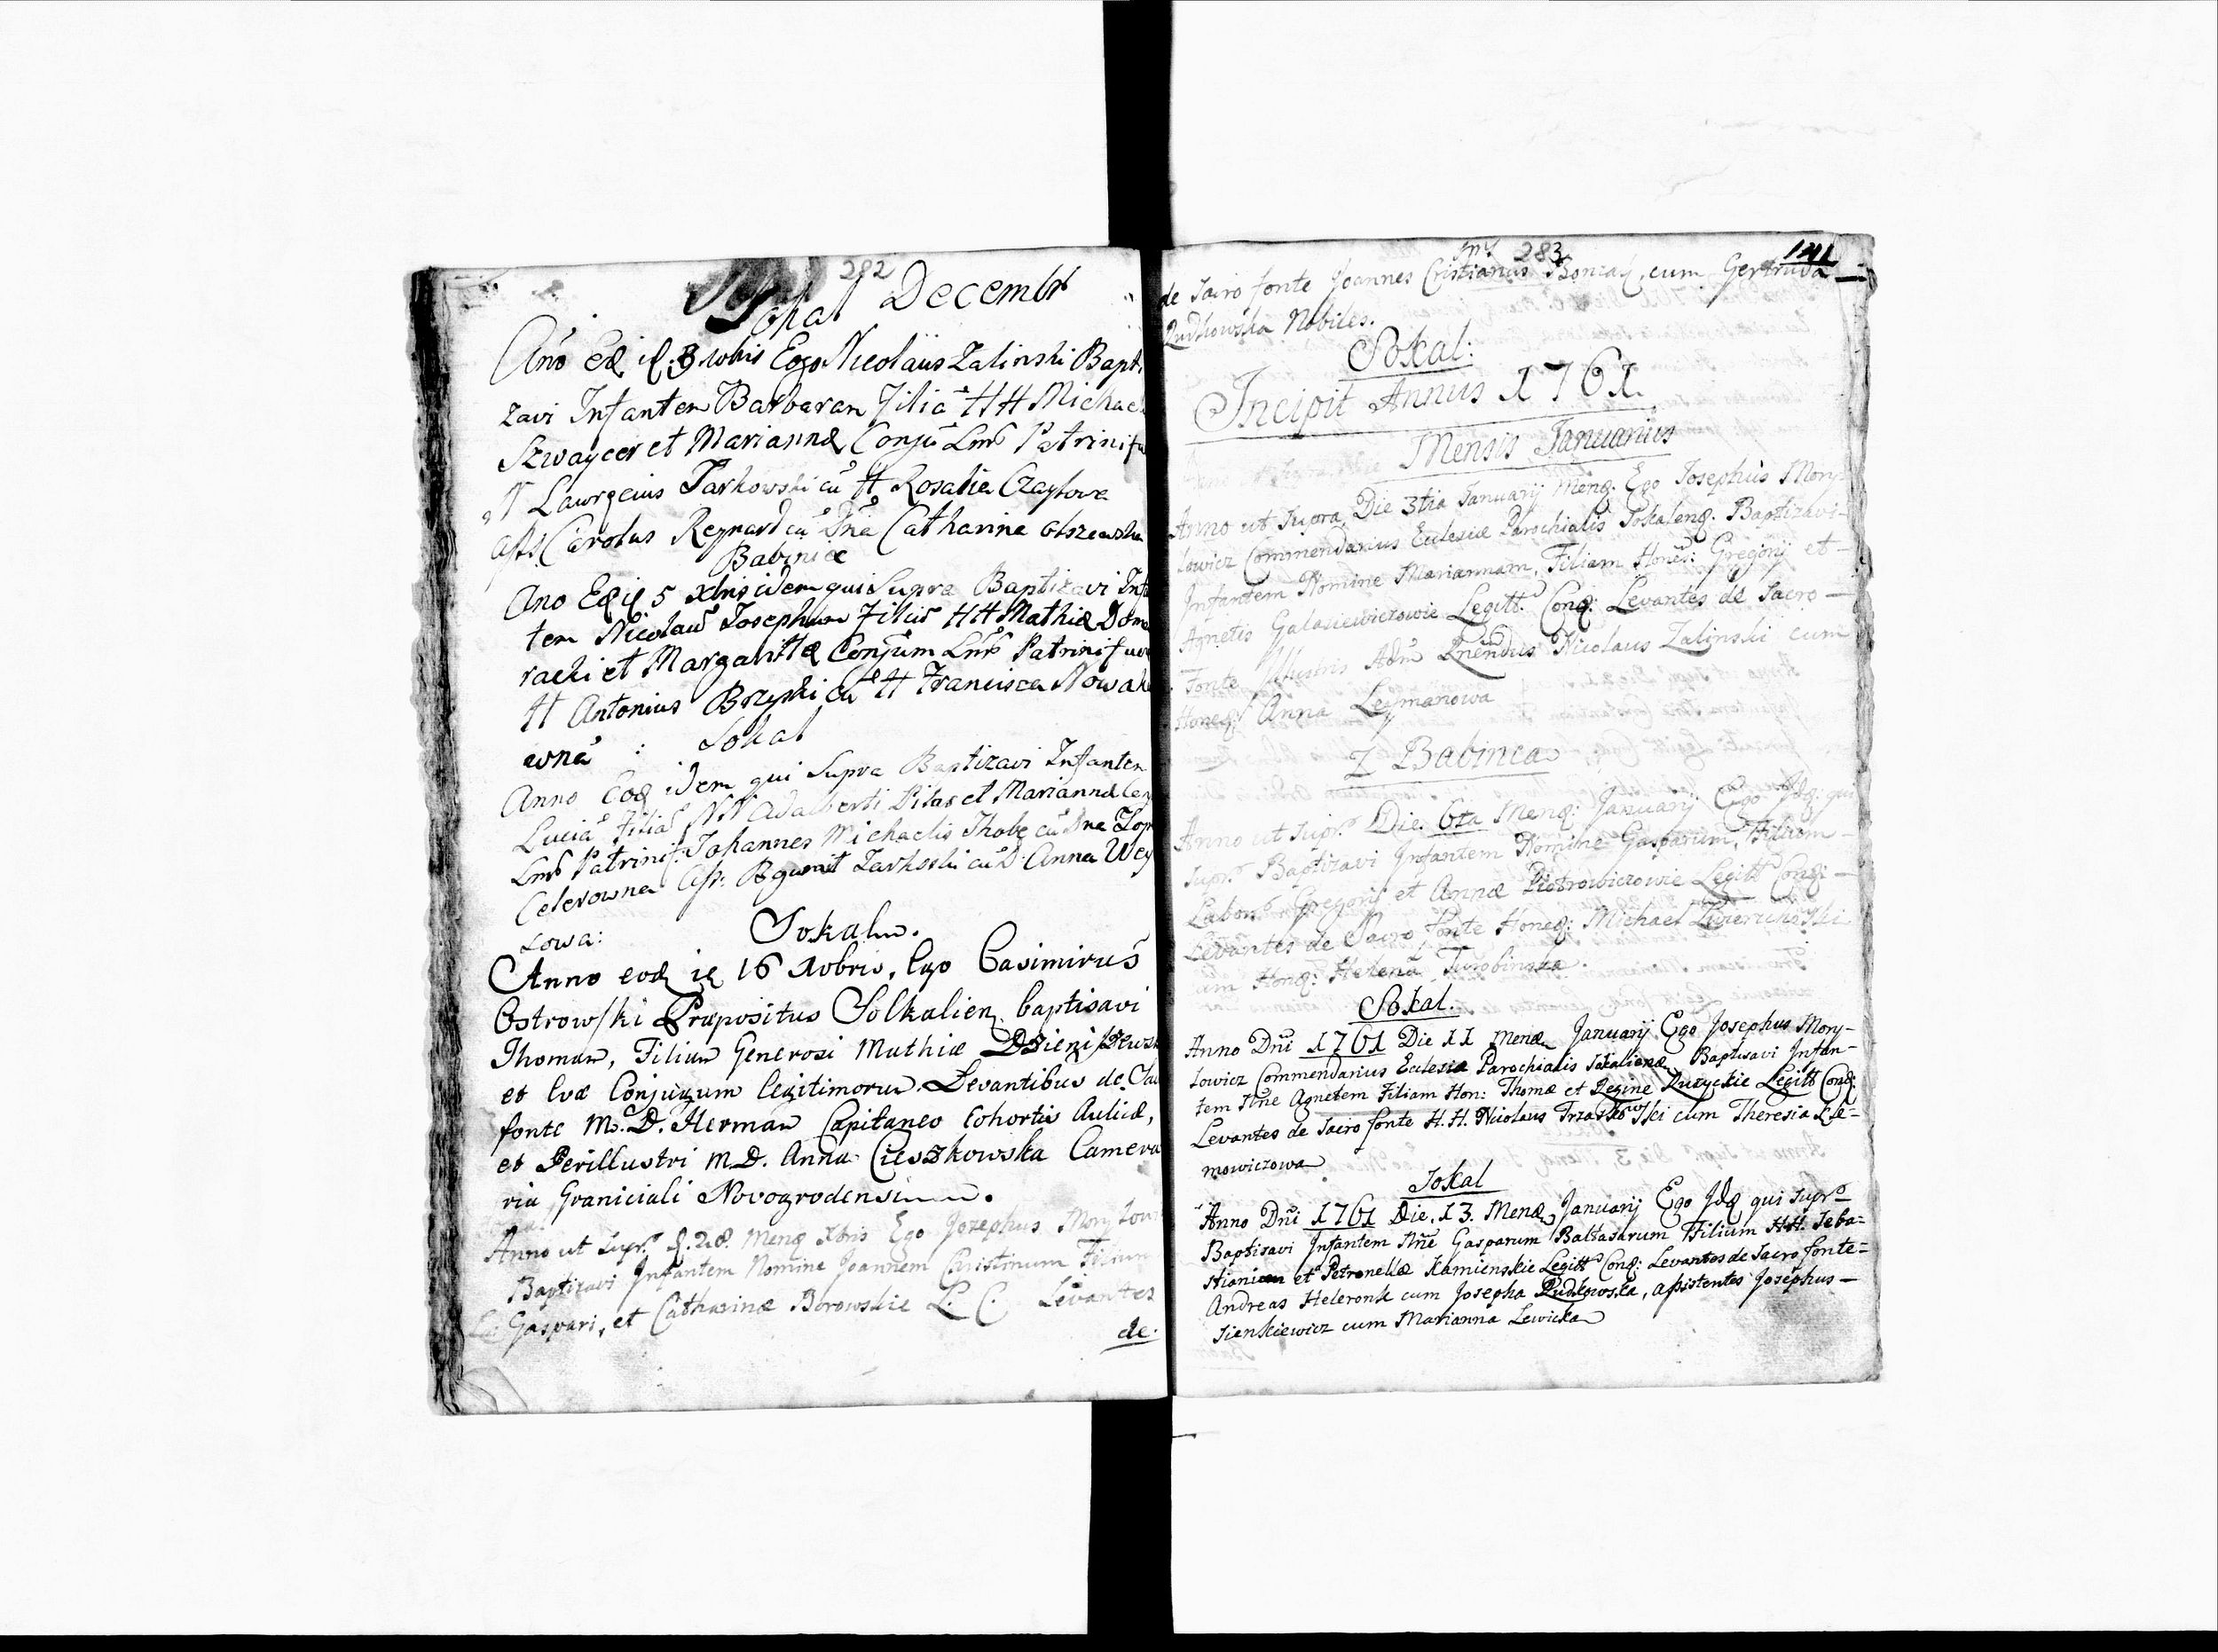 282
Sokal Decembr
Ano Eod id. 3 xbris Ego Nicolaus Zalinski Bapti
zavi Infantem Barbaram Filiā HH Michael
Szwaycer et Mariannæ Conju Lmo Patrini fu
Laurycius Tarkowski cū H Rosalia Czaylowa
Ass Carolus Reynard cū Dnā Catharina
Babinie
Ano Eod id 5 xbris idem qui Supra Baptizavi Inf
tem Nicolaū Josephum Filiū HH Mathiæ Dom
racki et Margarittæ Conjum Lmo Patrini fuer
H Antonius Brzyski cū H Francisca Nowak
owna : Sokal
Anno Eod idem qui Supra Baptizavi Infantem
Luciā Filiā NN Adalberti Pitas et Mariannæ Con
Lmo Patrini f: Johannes Michaelis Thobe cū
Celerowna Ass: cū D: Anna Wey
Lowa:
Sokaln.
Anno eod id 16 Xobris, Ego Casimirus
Ostrowski Præpositus Solkalien. baptisavi
Thoman, Filium Generosi Mathiæ
et Evæ Conjugum legitimorum. Levantibus de Sac
fonte M. D. Herman Capitaneo Cohortis Aulicæ,
et Perillustri M.D. Anna Cieszkowska Camera
ria Graniciali Novogrodensi
Anno ut supr. d. 28. Mens Xbris Ego Josephus Morylow
Baptizavi Infantem Nomine Joannem Cristinum Filium
Gaspari, et Catharinæ Borowskie L. C. Levantes
de.
283
141
de Sacro fonte Joannes Cristianus cum Gertruda
Rudkowska Nobiles.
Sokal:
Incipit Annus 1761.
Mensis Januarius
Anno ut Supra, Die 3tia Januarij Mens. Ego Josephus Mory-
Lowicz Commendarius Ecclesiæ Parochialis Sokalens. Baptizavi-
Infantem Nomine Mariannam, Filiam Hones: Gregorij et-
Agnetis Galasiewiczowie Legitt. Conq: Levantes de Sacro -
Fonte Illustris Adm Rnēndus Nicolaus Zalinski cum
Honeq: Anna Leymanowa
z Babinca
Anno ut supr. Die. 6ta Menq: Januarij Ego Idq: qui
supr. Baptizavi Infantem Nomine Gasparum, Filium -
Labor. Gregorij et Annæ Pietrowiczowie Legitt Conq: -
Levantes de Sacro Fonte Honeq: Michael
cum Honq: Helena Turobinska.
Sokal.
Anno Dni 1761 Die 11 Menq Januarij Ego Josephus Mory-
Lowicz Commendarius Ecclesiæ Parochialis Sokaliens Baptisavi Infan-
tem Nne Agnetem Filiam Hon: Thomæ et Regine Ruzyckie Legitt Conq:
Levantes de Sacro fonte H. H. Nicolaus Trzaskowski cum Theresia Kle-
mowiczowa
Sokal
Anno Dni 1761 Die. 13. Menq Januarij Ego Idq qui supr.
Baptisavi Infantem Nne Gasparum Baltasarum Filium H.H. Seba=
stianiem et Petronellæ Kamienskie Legitt Conq: Levantes de Sacro fonte=
Andreas Heleronk cum Josepha Rudkowska, assistentes Josephus -
Sienkiewicz cum Marianna Lewicka